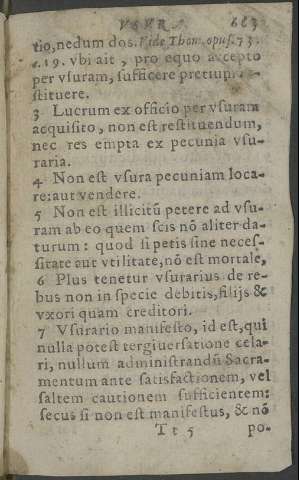 VSVRA. 663
tio, nedum dos. Vide Thom. opus. 73.
c. 19. vbi ait, pro equo accepto
per vsuram, sufficere pretium re-
stituere.
3 Lucrum ex officio per vsuram
acquisito, non est restituendum,
nec res empta ex pecunia vsu-
raria.
4 Non est vsura pecuniam loca-
re: aut vendere.
5 Non est illicitũ petere ad vsu-
ram ab eo quem scis nõ aliter da-
turum: quod si petis sine neces-
sitate aut vtilitate, nõ est mortale,
6 Plus tenetur vsurarius de re-
bus non in specie debitis, filijs &
vxori quam creditori.
7 Vsurario manifesto, id est, qui
nulla potest tergiuersatione cela-
ri, nullum administrandũ Sacra-
mentum ante satisfactionem, vel
saltem cautionem sufficientem:
secus si non est manifestus, & nõ
Tt 5 po-